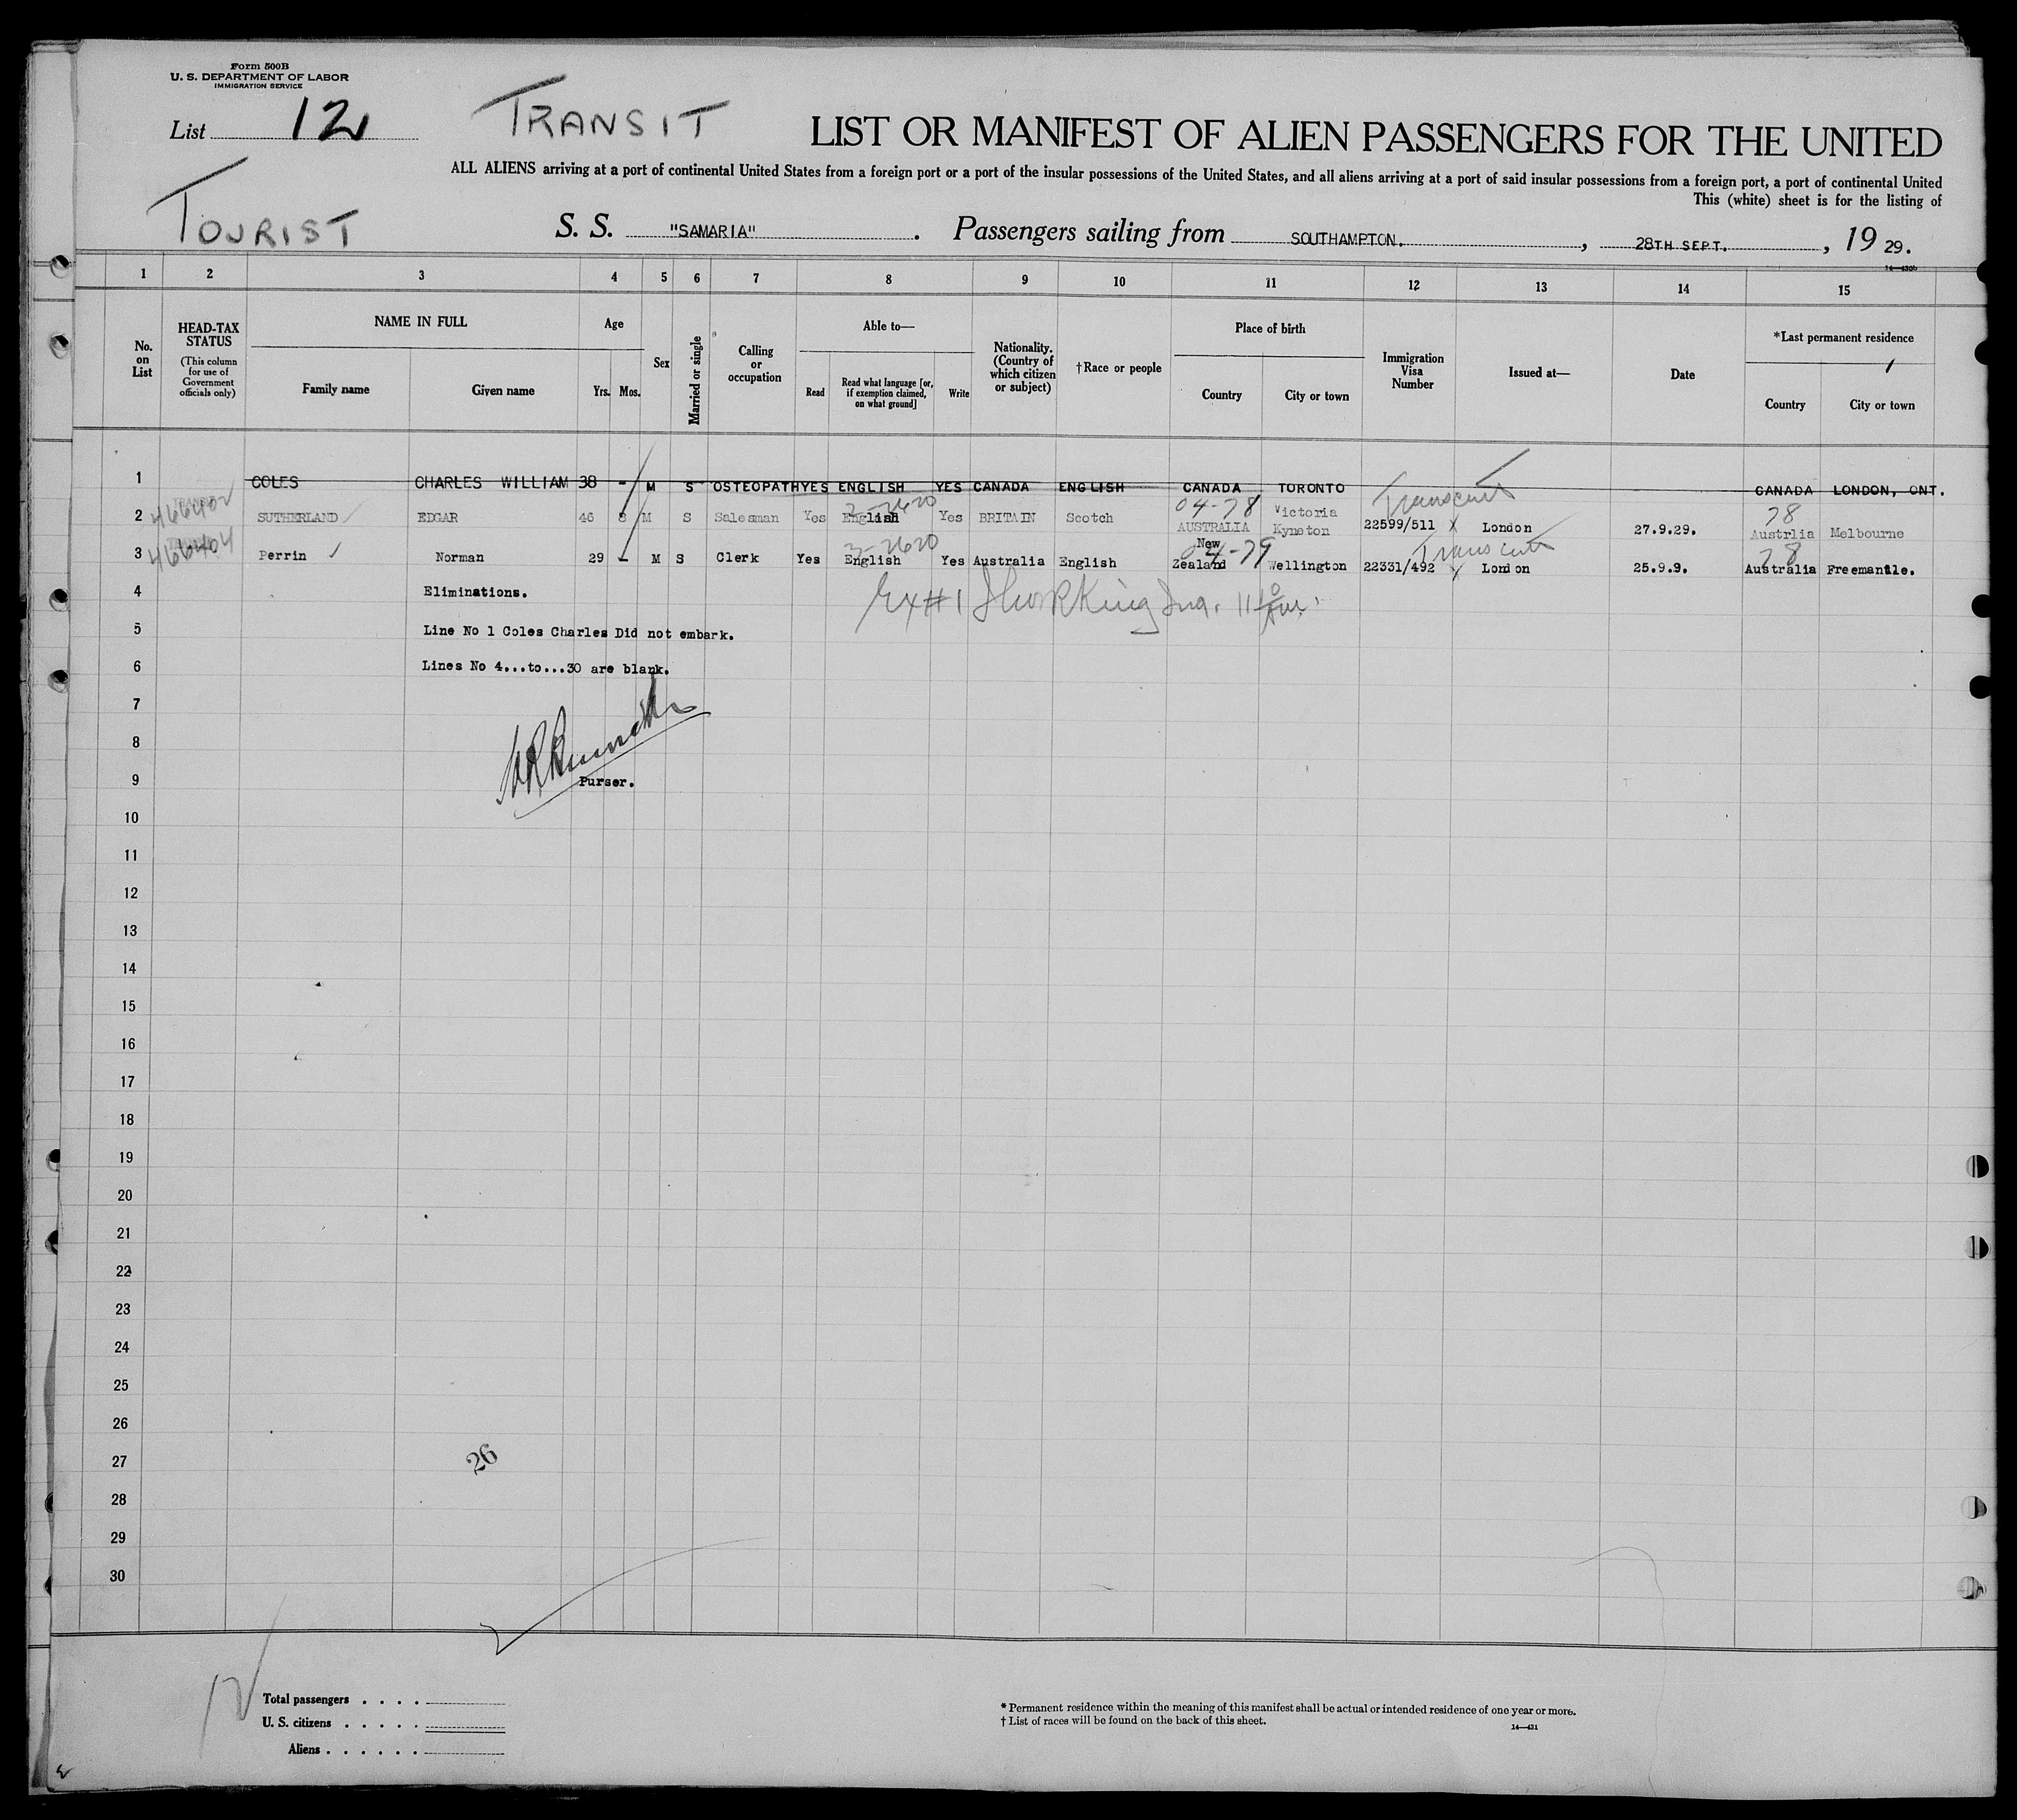 Form 500B
U. S. DEPARTMENT OF LABOR
IMMIGRATION SERVICE
List 12
TRANSIT
LIST OR MANIFEST OF ALIEN PASSENGERS FOR THE UNITED
ALL ALIENS arriving at a port of continental United States from a foreign port or a port of the insular possessions of the United States, and all aliens arriving at a port of said insular possessions from a foreign port, a port of continental United
This (white) sheet is for the listing of
TOURIST
S. S. "SAMARIA". Passengers sailing from SOUTHAMPTON., 28TH SEPT., 19 29.
1 2 3 4 5 6 7 8 9 10 11 12 13 14 15
No. on List
HEAD-TAX STATUS
(This column for use of Government officials only)
NAME IN FULL
Family name Given name
Age
Yrs. Mos.
Sex
Married or single
Calling or occupation
Able to—
Read Read what language [or, if exemption claimed, on what ground] Write
Nationality. (Country of which citizen or subject)
†Race or people
Place of birth
Country City or town
Immigration Visa Number
Issued at—
Date
*Last permanent residence
Country City or town
1 COLES CHARLES WILLIAM 38 - M S OSTEOPATH YES ENGLISH YES CANADA ENGLISH CANADA TORONTO CANADA LONDON, ONT.
04-78 Victoria 78
2 SUTHERLAND EDGAR 46 8 M S Salesman Yes English Yes BRITAIN Scotch AUSTRALIA Kyneton 22599/511 London 27.9.29. Austrlia Melbourne
New 78
3 Perrin Norman 29 - M S Clerk Yes English Yes Australia English Zealand Wellington 22331/492 London 25.9.9. Australia Freemantle.
4 Eliminations.
5 Line No 1 Coles Charles Did not embark.
6 Lines No 4...to...30 are blank.
7
8
9 Purser.
10
11
12
13
14
15
16
17
18
19
20
21
22
23
24
25
26
27 26
28
29
30
Total passengers . . . .
U. S. citizens . . . . .
Aliens . . . . . .
* Permanent residence within the meaning of this manifest shall be actual or intended residence of one year or more.
† List of races will be found on the back of this sheet.
14—431